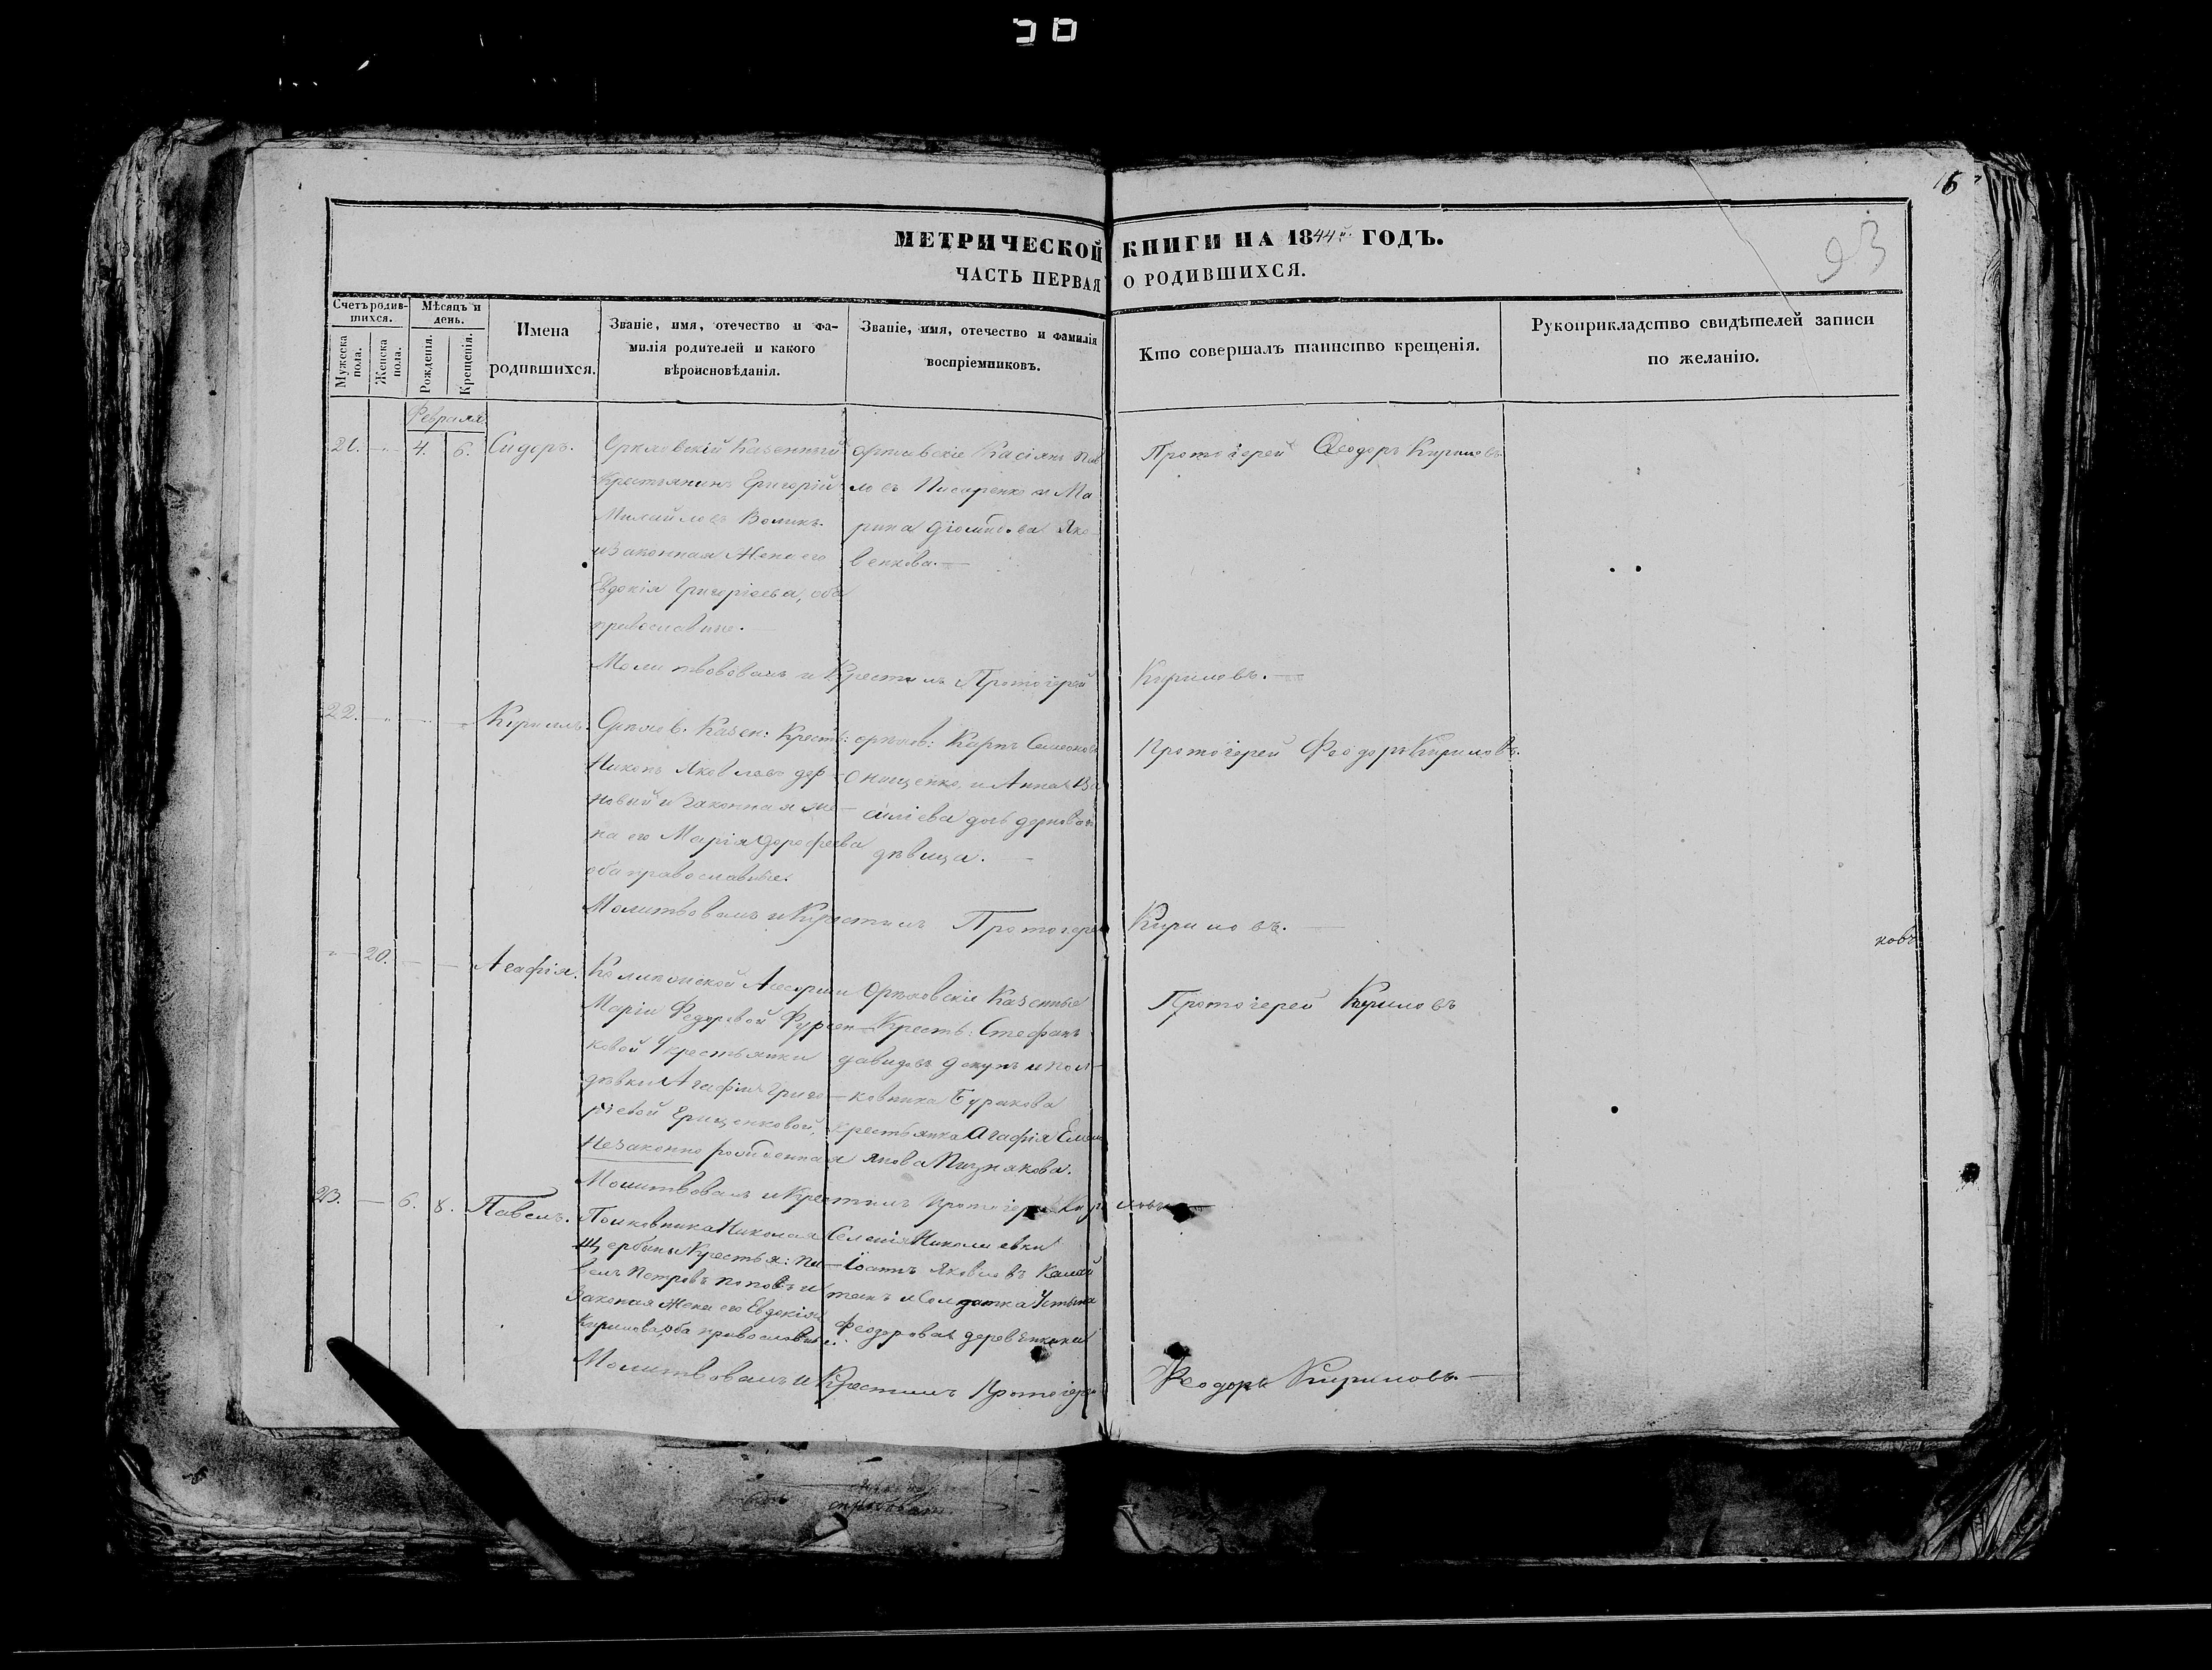 16
93
МЕТРИЧЕСКОЙ КНИГИ НА 1844й ГОДЪ.
ЧАСТЬ ПЕРВАЯ О РОДИВШИХСЯ.
Счетъ родив-
шихся.
Мужеска пола.
Женска пола.
Мѣсяцъ и день.
Рожденія.
Крещенія.
Имена
родившихся.
Званіе, имя, отечество и фа-
милія родителей и какого
вѣроисповѣданія.
Званіе, имя, отечество и фамилія
воспріемниковъ.
Кто совершалъ таинство крещенія.
Рукоприкладство свидѣтелей записи
по желанію.
Февраля
21. 4. 6. Сидоръ.
Казенный
Крестьянинъ Григорій
Михайловъ Воликъ
и Законная Жена его
Евдокія Григоріева, оба
православные.
Касіянъ Пав
ловъ Писаренко и Ма
рина Яко
венкова.
Протоіерей Ѳеодоръ Кириловъ
Молитвовалъ и Крестилъ Протоіерей Кириловъ.
22. Кириллъ.
Казен: Кресть:
Никонъ Яковлевъ дер-
новый и Законная же-
на его Марія Дорофеева
оба православные.
Карпъ Семеоновъ
Онищенко, и Анна Ва
силіева
дѣвица.
Протоіерей Феодоръ Кириловъ.
Молитвовалъ и Крестилъ Протоіерей Кириловъ.
20. Агафія.
Маріи Федоровой Фурсен-
ковой крестьянки
дѣвки Агафіи Григо-
ріевой Грищенковой,
Незаконно рожденная
Казенные
Кресть: Стефанъ
Давидовъ и пол-
ковника Буракова
крестьянка Агафія Емель
янова
Протоіерей Кириловъ
ковъ
Молитвовалъ и Крестилъ Протоіерей Кириловъ
23. 6. 8. Павелъ.
Полковника Николая
Щербины Крестья: Па-
велъ Петровъ Поповъ и
Законая Жена его Евдокія
Кирилова, оба православные.
Селенія Николаевки
Іоаннъ Яковлевъ
и Солдатка Устинья
Феодорова
Молитвовалъ и Крестилъ Протоіерей Феодоръ Кириловъ.